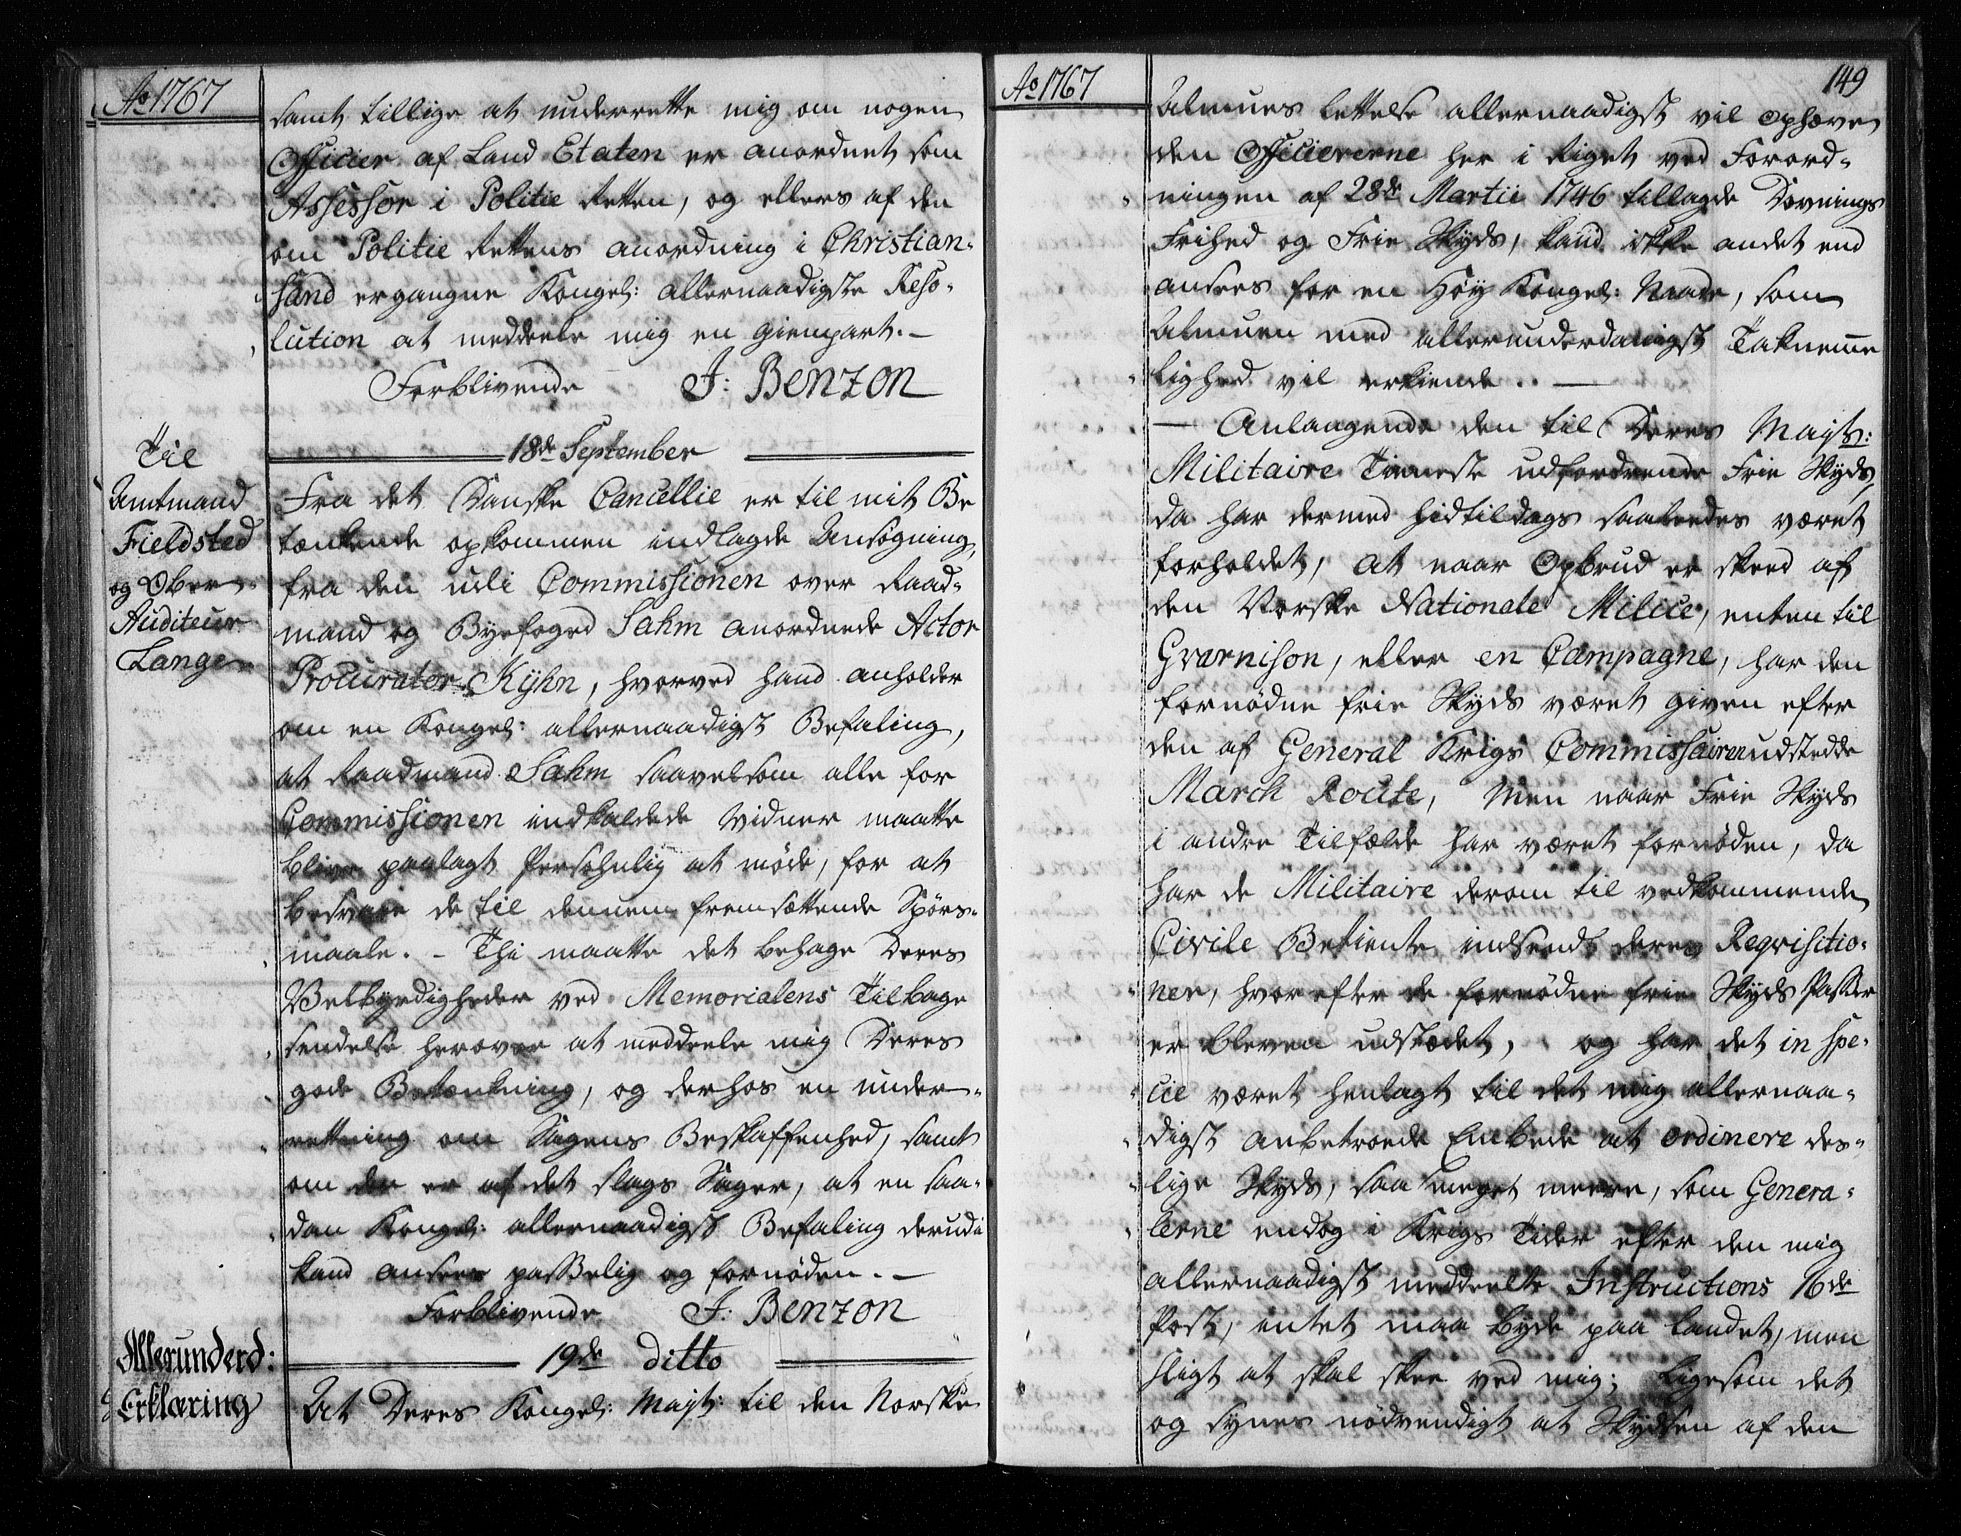 Ao 1767
samt tillige at underrette mig om nogen
Officier af Land Etaten er anordnet som
Assessor i Politie Retten, og ellers af den
om Politie Rettens anordning i Christian-
sand ergangne Kongel: allernaadigste Reso-
lution at meddeele mig en Gienpart. –
Forblivende J: Benzon
18de September
Til
Amtmand
Fieldsted
og Ober
Auditeur
Lange
Fra det Danske Cancellie er til mit Be
tænkende opkommen indlagde Ansøgning
fra den udi Commissionen over Raad-
mand og Byefoged Sahm anordnede Actor
Procurator Kyhn, hvorved hand anholder
om en Kongel: allernaadigst Befaling,
at Raadmand Sahm saavelsom alle for
Commissionen indkaldede Vidner maatte
blive paalagt Persohnlig at møde, for at
besvare de til dennem fremsættende Spørs-
maale. – Thi maatte det behage Deres
Velbyrdigheder ved Memorialens Tilbage
sendelse herover at meddeele mig Deres
gode Betænkning, og derhos en under-
rettning om Sagens Beskaffenhed, samt
om der er af det slags Sager, at en saa-
dan Kongel: allernaadigst Befaling derudi
kand ansees passelig og fornøden. –
Forblivende J: Benzon
19de ditto
Allerunderd:
Erklæring
At Deres Kongel: Mayt: til den Norske
Ao 1767
149
Almues lettelse allernaadigst vil ophæve
den Officiererne her i Riget ved Forord-
ningen af 28de Martii 1746 tillagde Dovnings
Frihed og Frie Skyds, kand ikke andet end
ansees for en Høy Kongel: Naade, som
Almuen med allerunderdanigst Taknemme
lighed vil erkiende. . –
– Anlangende den til Deres Mayts:
Militaire Tieneste udfordrende Frie Skyds,
da har dermed hidtildags saaledes været
forholdet, at naar Opbrud er skeed af
den Norske Nationale Milice, enten til
Gvarnison, eller en Campagne, har den
fornødne frie Skyds været given efter
den af General Krigs Commissairen udstedde
March Route, Men naar Frie Skyds
i andre Tilfælde har været fornøden, da
har de Militaire derom til vedkommende
Civile Betiente indsendt deres Reqvisitio-
ner, hvorefter de fornødne frie Skyds Passer
er bleven udstædet, og har det in spe-
cie været henlagt til det mig allernaa-
digst anbetroede Embede at ordinere des-
lige Skyds, saa meget meere, som Genera-
lerne endog i Krigs Tider efter den mig
allernaadigst meddeelte Instructions 16de
Post, intet maa byde paa Landet, men
sligt at skal skee ved mig; Ligesom det
og synes nødvendigt at Skydsen af den